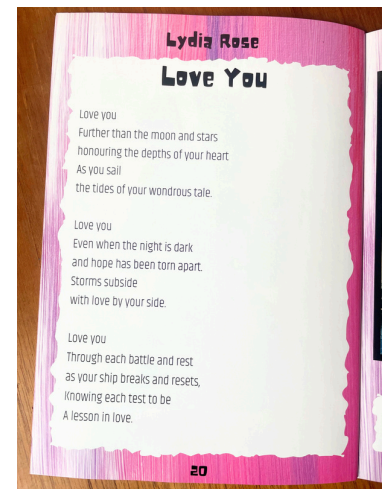 Lydia Rose
Love You
Love you
Further than the moon and stars
honouring the depths of your heart
As you sail
the tides of your wondrous tale.
Love you
Even when the night is dark
and hope has been torn apart.
Storms subside
with love by your side.
Love you
Through each battle and rest
as your ship breaks and resets,
Knowing each test to be
A lesson in love.
20